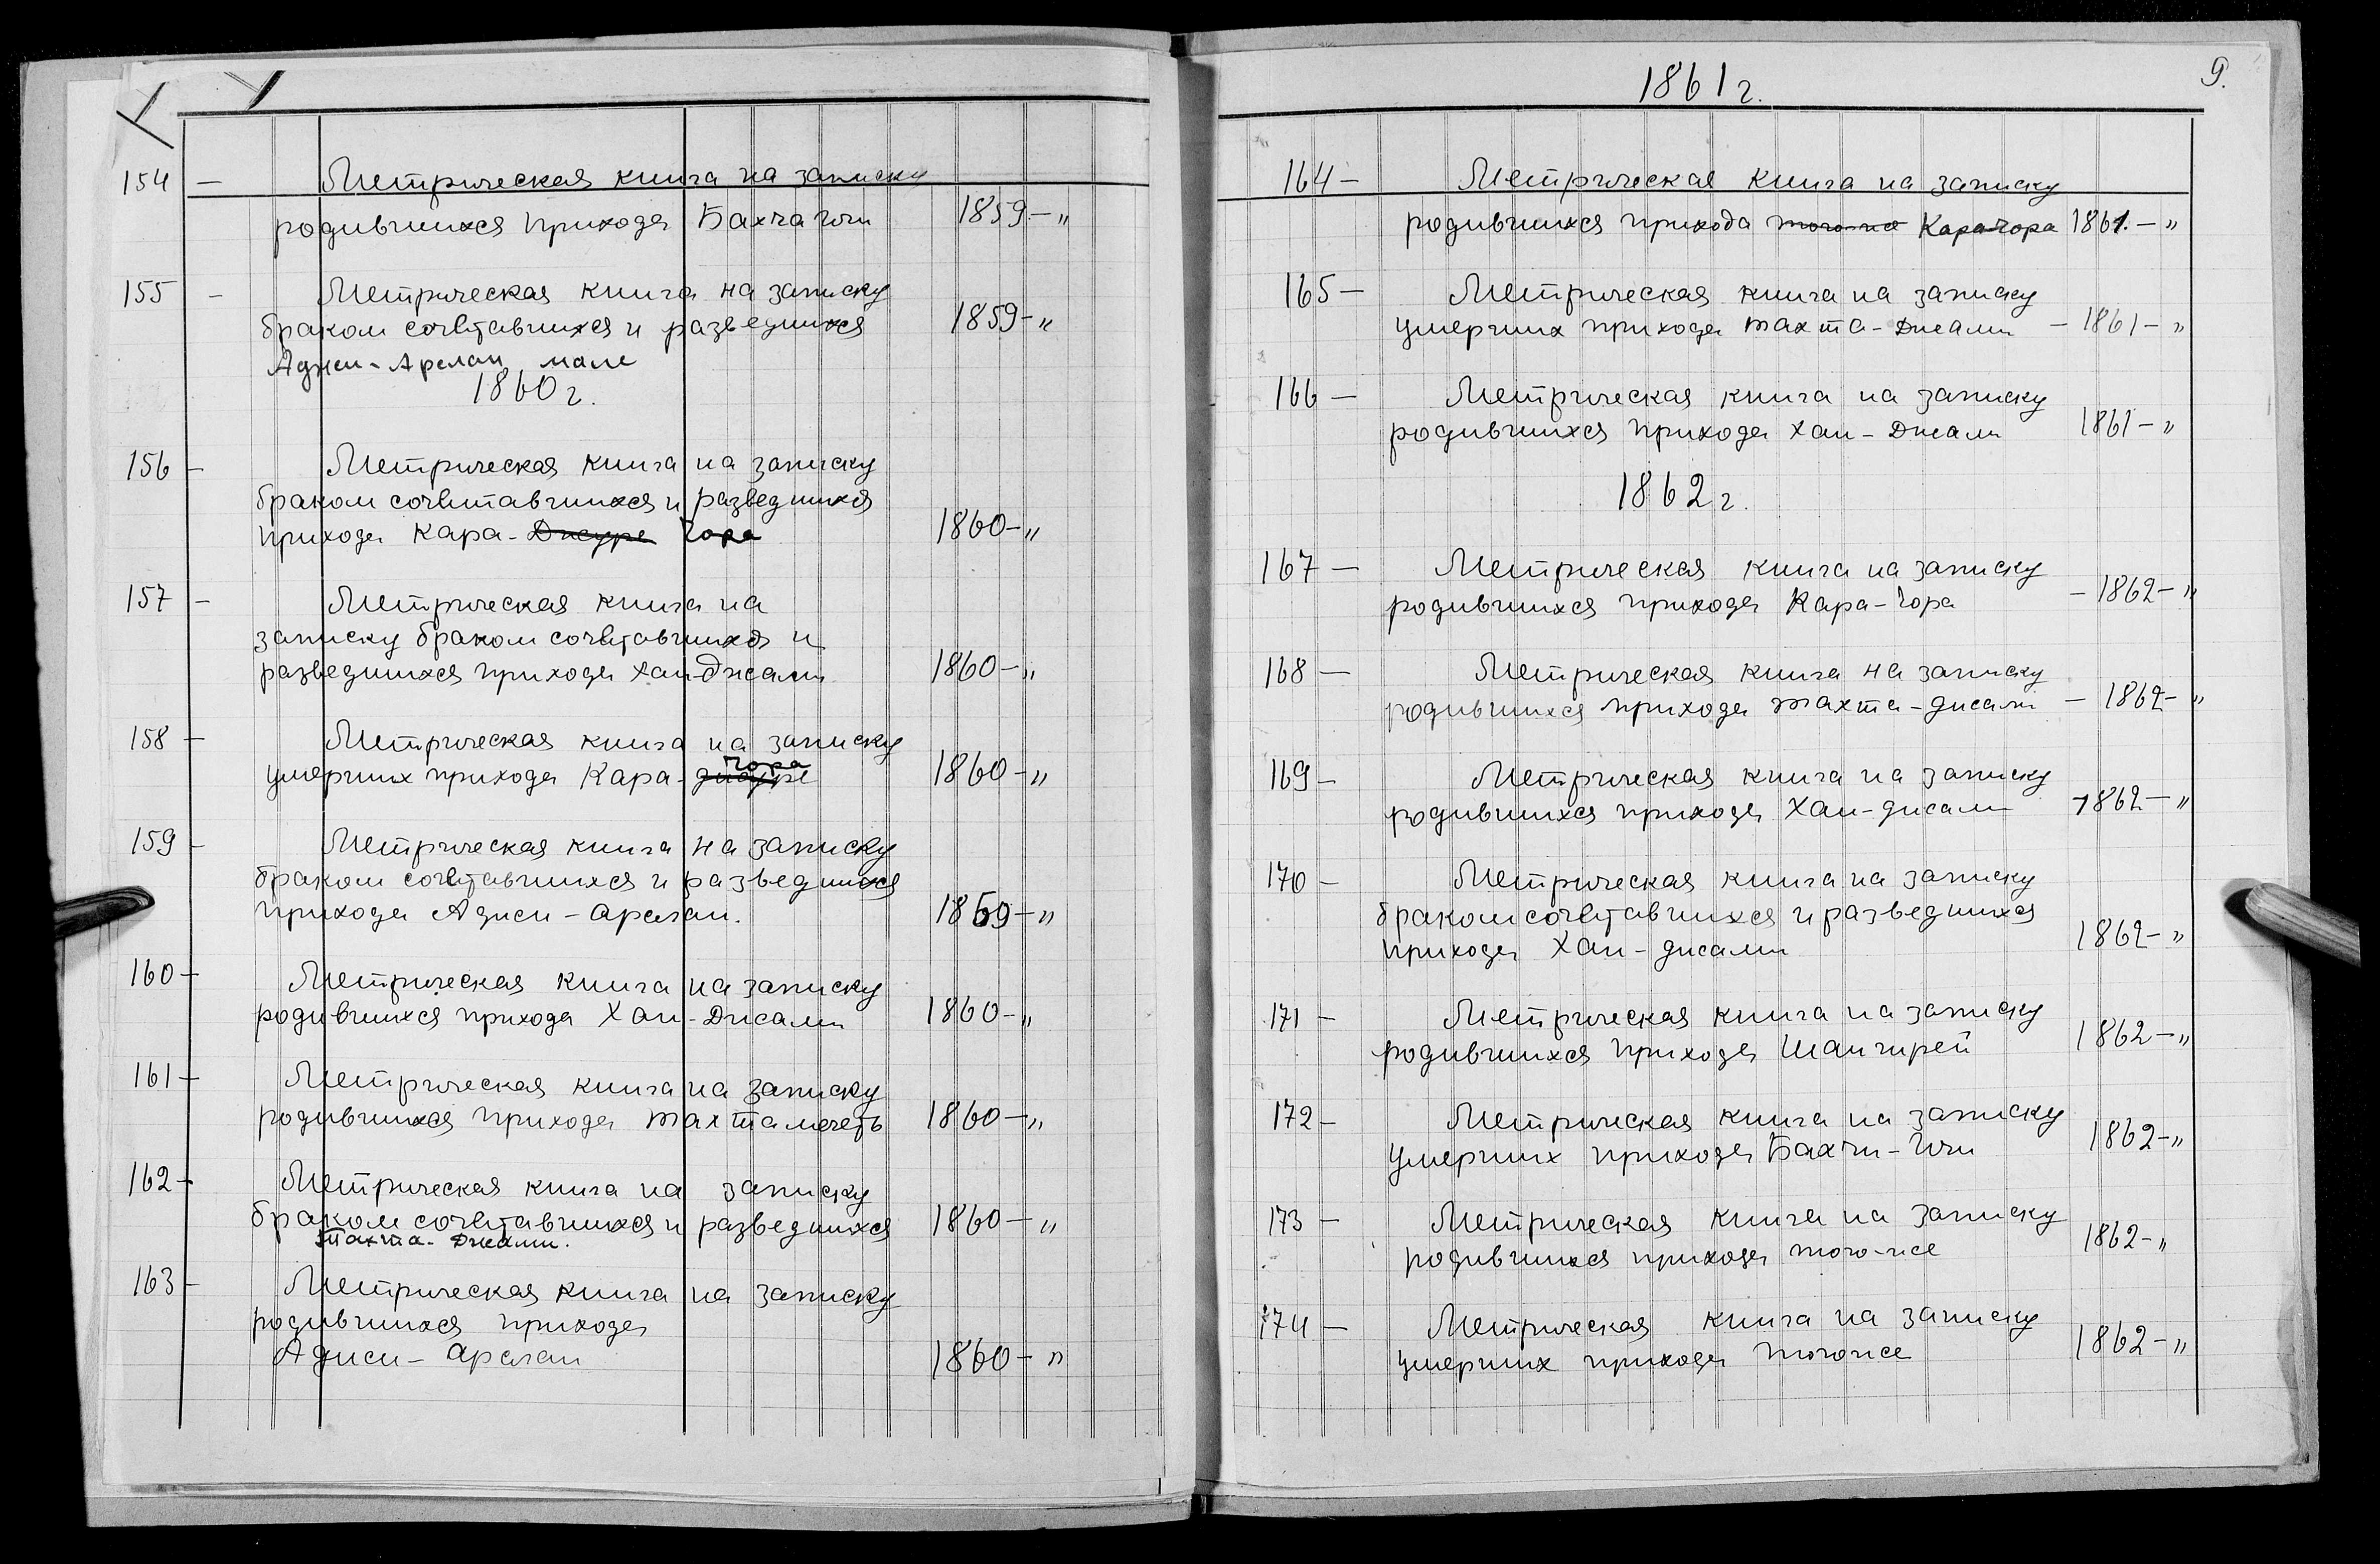 154 — Метрическая книга на записку
родившихся прихода Бахча Или 1859 — "
155 — Метрическая книга на записку
браком сочетавшихся и разведшихся 1859 — "
Аджи-Арслан мале
1860 г.
156 — Метрическая книга на записку
браком сочетавшихся и разведшихся
прихода Кара-Джуре Чора 1860 — "
157 — Метрическая книга на
записку браком сочетавшихся и
разведшихся прихода Хан-Джами 1860 — "
158 — Метрическая книга на записку
Чора
умерших прихода Кара-джуре 1860 — "
159 — Метрическая книга на записку
браком сочетавшихся и разведшихся
прихода Аджи-Арслан. 1860 — "
160 — Метрическая книга на записку
родившихся прихода Хан-Джами 1860 — "
161 — Метрическая книга на записку
родившихся прихода Тахта мечеть 1860 — "
162 — Метрическая книга на записку
браком сочетавшихся и разведшихся 1860 — "
Тахта-Джами.
163 — Метрическая книга на записку
родившихся прихода
Аджи-Арслан 1860 — "
9.
1861 г.
164 — Метрическая книга на записку
родившихся прихода того-же Карачора 1861. — "
165 — Метрическая книга на записку
умерших прихода Тахта-Джами — 1861 — "
166 — Метрическая книга на записку
родившихся прихода Хан-Джами 1861 — "
1862 г.
167 — Метрическая книга на записку
родившихся прихода Кара-Чора — 1862 — "
168 — Метрическая книга на записку
родившихся прихода Тахта-джами — 1862 — "
169 — Метрическая книга на записку
родившихся прихода Хан-джами 1862 — "
170 — Метрическая книга на записку
браком сочетавшихся и разведшихся
прихода Хан-джами 1862 — "
171 — Метрическая книга на записку
родившихся прихода Шангирей 1862 — "
172 — Метрическая книга на записку
умерших прихода Бахчи-Или 1862 — "
173 — Метрическая книга на записку
родившихся прихода того-же 1862 — "
174 — Метрическая книга на записку
умерших прихода тогоже 1862 — "